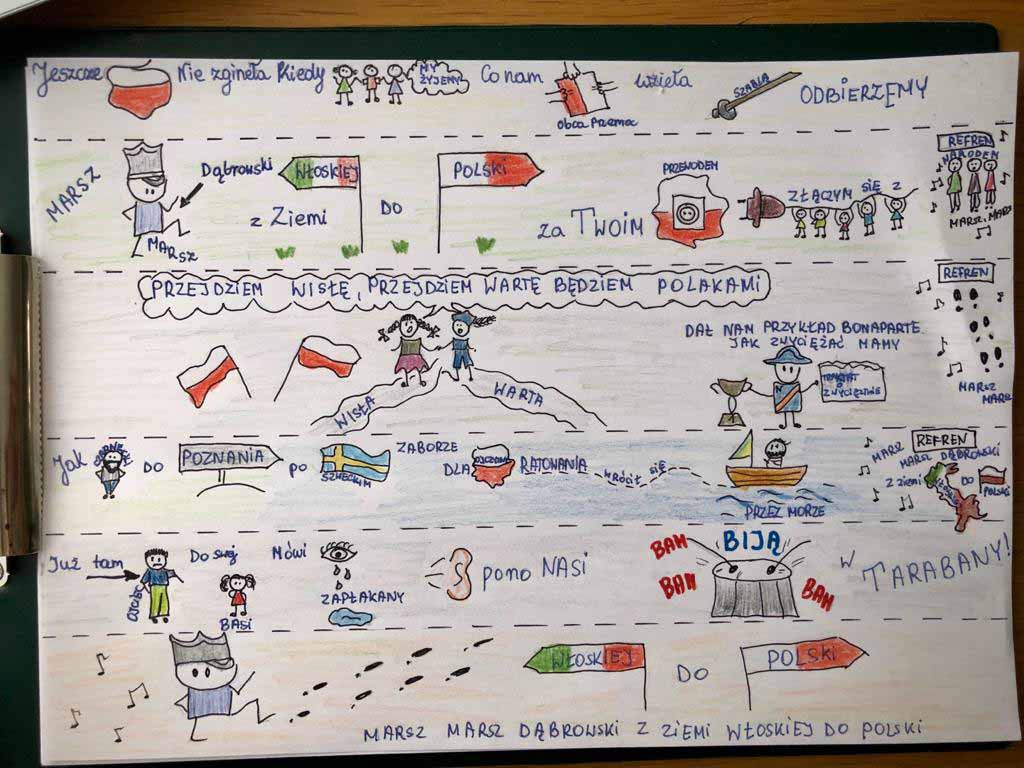 Jeszcze Nie zginęła Kiedy MY ŻYJEMY Co nam wzięła SZABLA ODBIERZEMY
Obca Przemoc
MARSZ
MARSZ
Dąbrowski
z Ziemi
WŁOSKIEJ
DO
POLSKI
za TWOIM
PRZEWODEM
ZŁĄCZYM SIĘ Z
REFREN
NARODEM
MARSZ, MARSZ
PRZEJDZIEM WISŁĘ, PRZEJDZIEM WARTĘ BĘDZIEM POLAKAMI
WISŁA
WARTA
DAŁ NAM PRZYKŁAD BONAPARTE
JAK ZWYCIĘŻAĆ MAMY
N
ZWYCIĘZTWIE
REFREN
MARSZ
MARSZ
Jak
DO
POZNANIA
po
SZWECKIM
ZABORZE
DLA
OJCZYZNY
RATOWANIA
wrócił się
PRZEZ MORZE
REFREN
MARSZ
MARSZ DĄBROWSKI
Z ziemi
DO
POLSKI
Już tam
OJCIEC
Do swej
BASI
Mówi
ZAPŁAKANY
pono NASI
BAM
BAM
BIJĄ
BAM
W
TARABANY!
WŁOSKIEJ
DO
POLSKI
MARSZ MARSZ DĄBROWSKI Z ZIEMI WŁOSKIEJ DO POLSKI